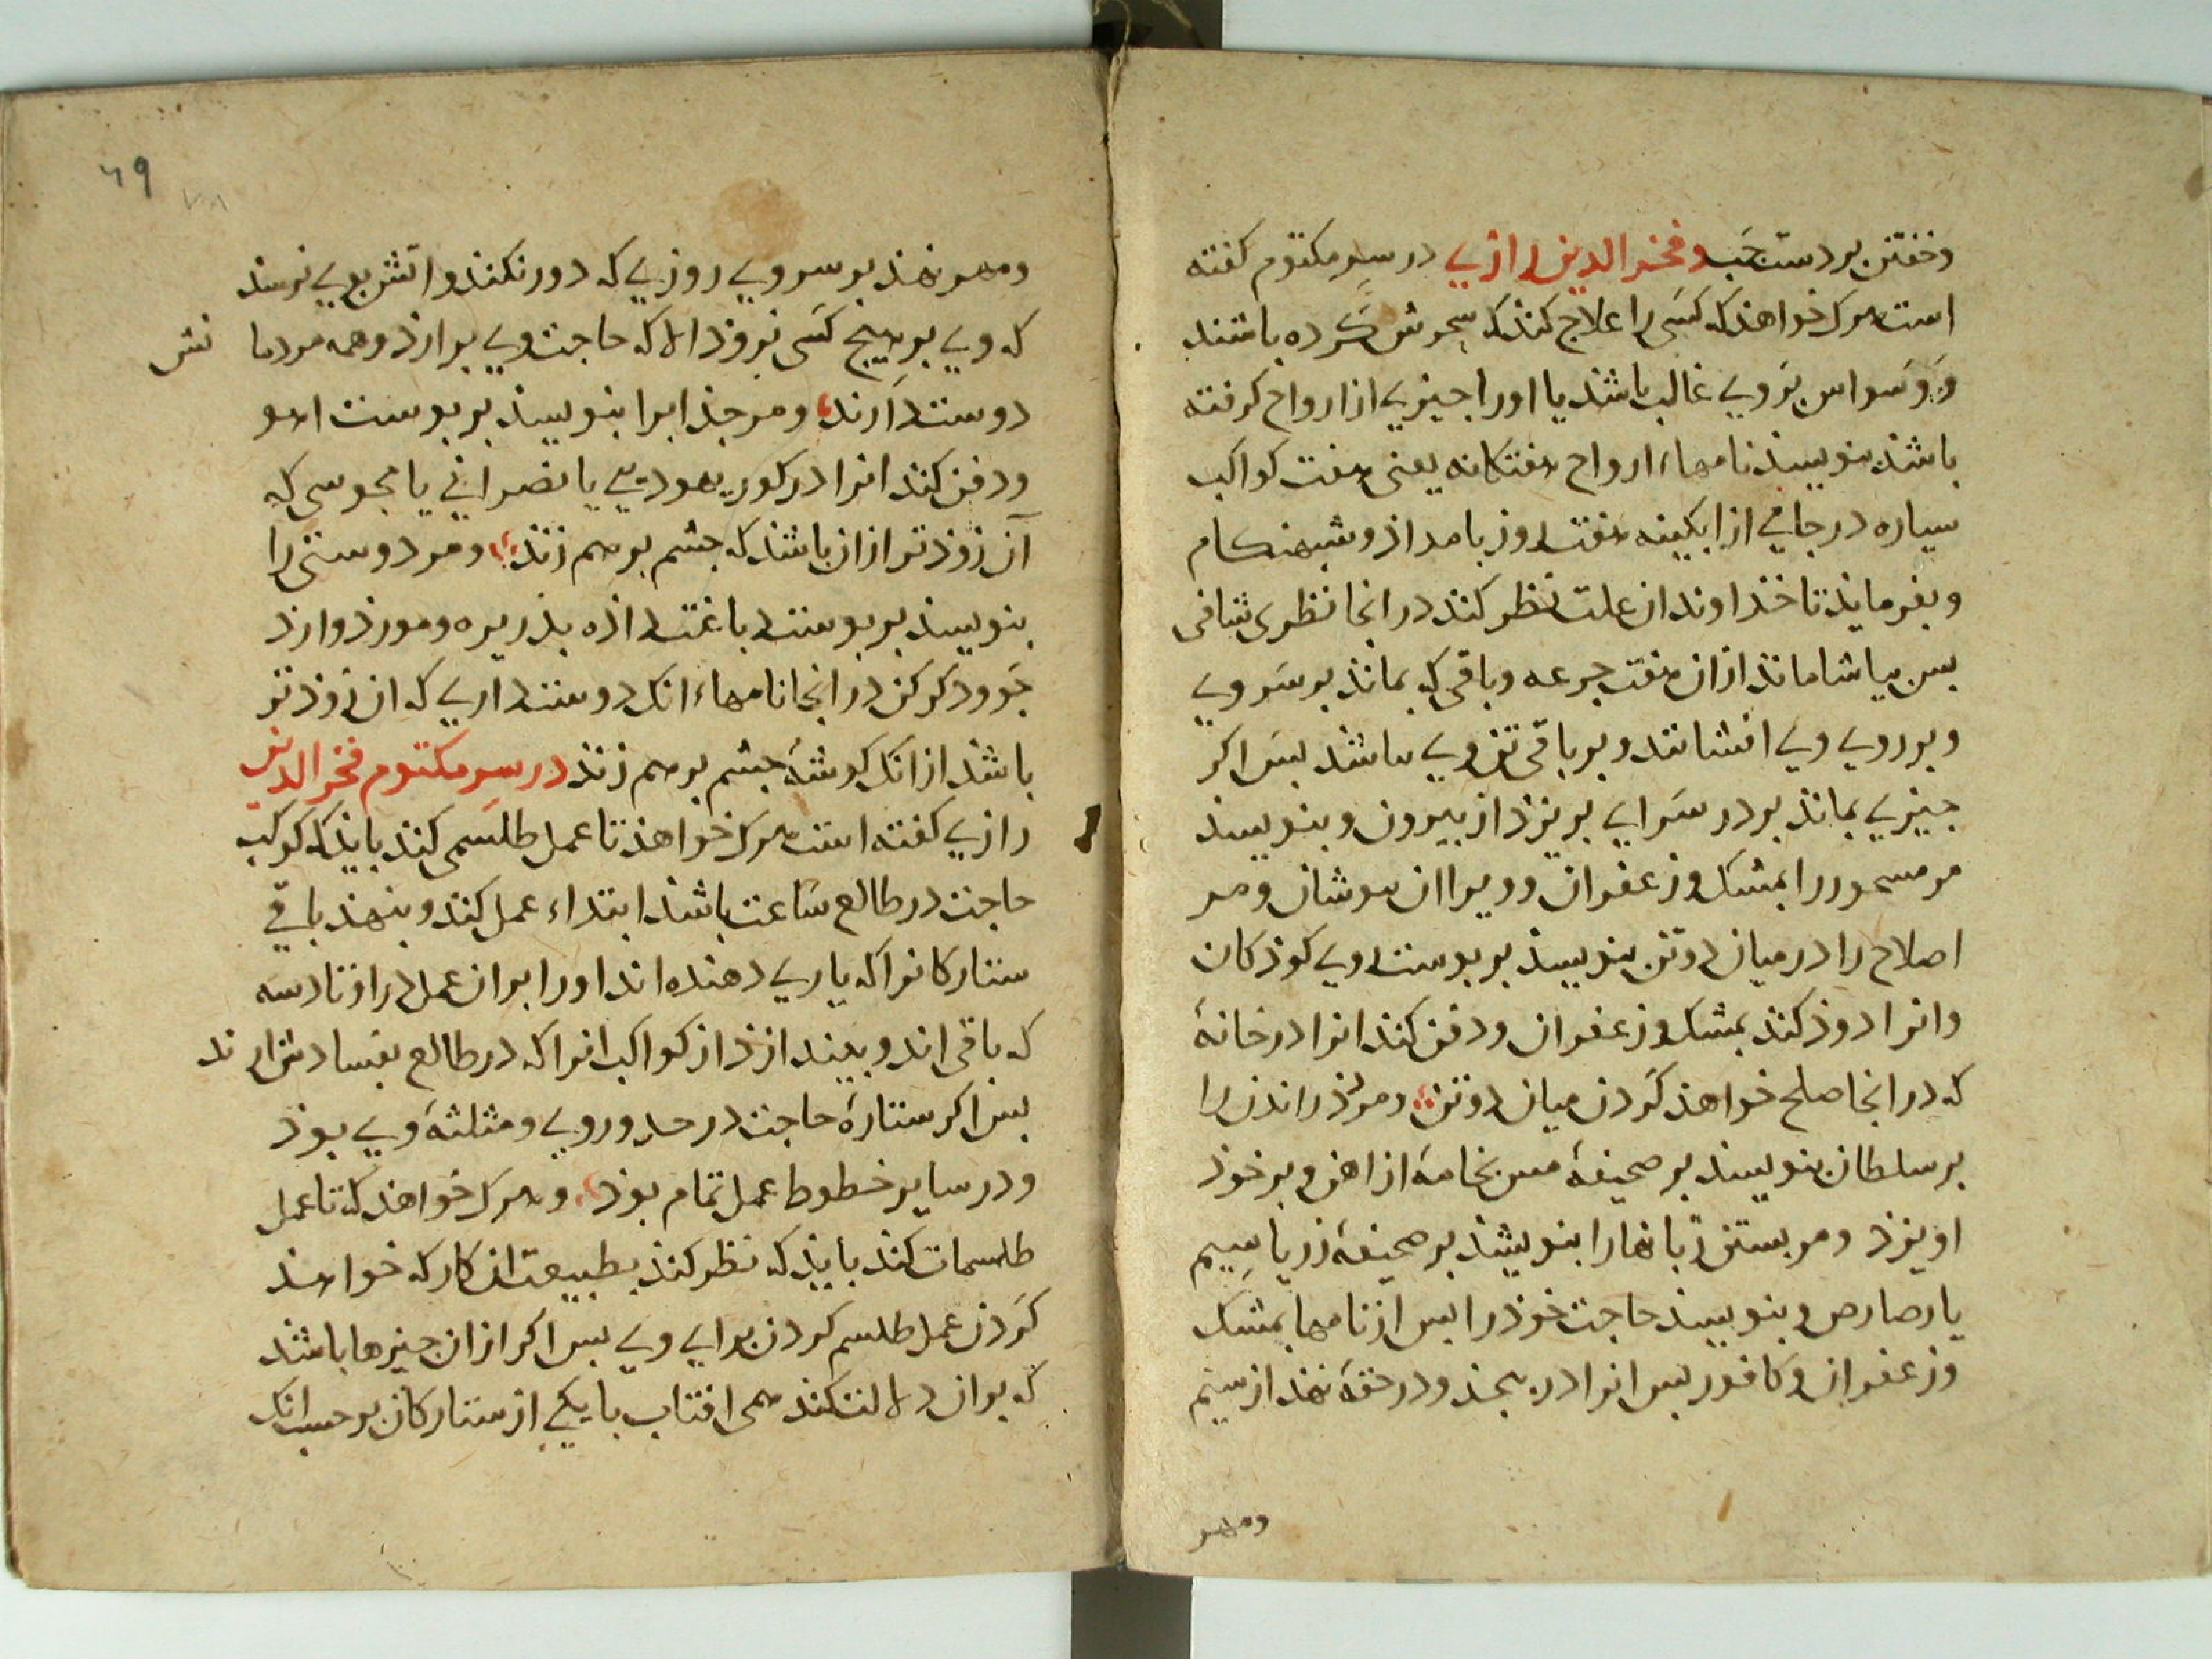 وخفتن بر دست جب وفخر الدین رازي در سِر مکتوم کفته
است هرک خواهذ که کسَی را علاج کنذ که سِحرش کَرده باشند
وَوَسَواس بَرویے غالب باشد یا اورا جیزیے از ارواح کرفته
باشذ بنویسذ نامهاء ارواح هفتکانه یعنی هفت کواکب
سیاره در جامي از ابکینه هفت روز بامداذ وشبهنکام
وبفرمایذ تا خذاوند ان علت نظر کنذ در انجا نظری شافی
بس بیاشاماند ازان هفت جرعه وباقی که بماند بر سَر ویے
وبر رویے ویے افشانند وبر باقی تن ویے باشد بسَ اکر
جیزیے بماند بر در سَرایے بریزذ از بیرون وبنویسند
مر مسحور را بمشک وزعفران وویرا ان بوشان ومر
اصلاح را در میان دوتن بنویسذ بر بوست ویے کوذکان
وانرا دوذ کند بمشک وزعفران ودفن کنذ انرا در خانهٔ
که در انجا صلح خواهذ کَردن میان دوتن ومر کذراندن را
بر سلطان بنویسند بر صحیفهٔ مس بخامهٔ از اهن وبر خوذ
اویزذ ومر بستن زبانها را بنویشذ بر صحیفهٔ زر یا سِیم
یا رصاص وبنویسذ حاجت خوذ را بس از نامها بمشک
وزعفران وکافور بس انرا در بیجذ ودر حقهٔ نهذ از سیم
ومهر
۶۹
۷۸
ومهر نهذ بر سر ویے روزیے که دور نکنذ واتش بویے نرسذ
که ویے بر هیج کسَی نروذ الا که حاجت ویے برارذ وهمه مردما نش
دوست دَارند ومر جذ ابرا بنویسذ بر بوست اهو
ودفن کنذ انرا در کور یهودیي یا نصراني یا مجوسی که
آن زوذتر ازان باشذ که جشم برهم زنذ ومر دوستی را
بنویسذ بر بوست دباغت داذه بذریره ومورد وارد
جَو ودکر کن در انجا نامهاء انک دوست داریے که ان زوذتر
باشذ از انک کوشهٔ جشم برهم زنذ در سِر مکتوم فخر الدین
رازیے کفته است هرک خواهذ تا عمل طلسَمی کند بایذ که کوکب
حاجت در طالع سَاعت باشذ ابتداء عمل کنذ وبنهذ باقي
ستارکانرا که یاریے دهنده اند اورا بران عمل در اوتاد سه
که باقی اند وبیندازذ از کواکب انرا که در طالع بفساد شرار ند
بس اکر ستارهٔ حاجت در حد ورویے ومثلثهٔ ویے بوذ
ودر سایر خطوط عمل تمام بوذ وهرک خواهذ که تا عمل
طلسمات کند بایذ که نظر کند بطبیعت ان کار که خواهذ
کَردن عمل طلسم کردن برایے ویے بس اکر ازان جیزها باشذ
که بران دلالت کند همی افتاب با یکي از ستارکان بر حسب انک